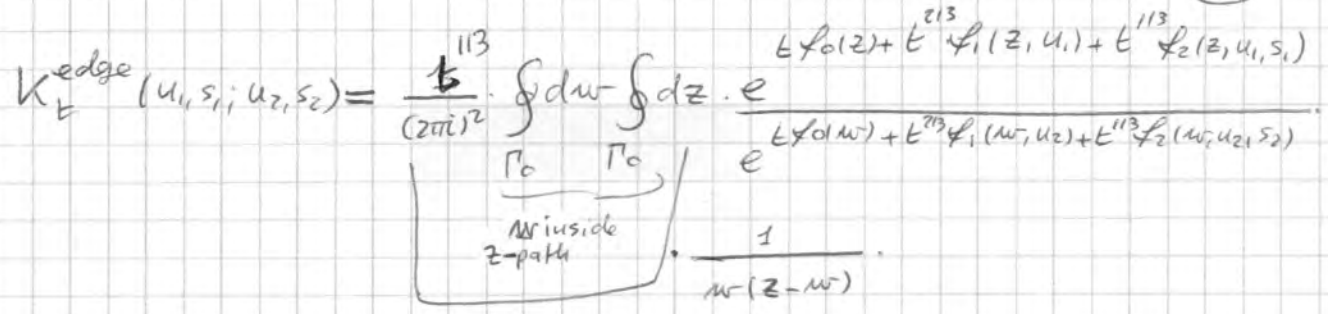 K_t^{edge}(u_1, s_1; u_2, s_2) = \frac{t^{1/3}}{(2\pi i)^2} \cdot \oint_{\Gamma_0} dw \oint_{\Gamma_0} dz \cdot \frac{e^{t f_0(z) + t^{2/3} f_1(z, u_1) + t^{1/3} f_2(z, u_1, s_1)}}{e^{t f_0(w) + t^{2/3} f_1(w, u_2) + t^{1/3} f_2(w, u_2, s_2)}} \cdot
w inside
z-path
\cdot \frac{1}{w(z-w)} .